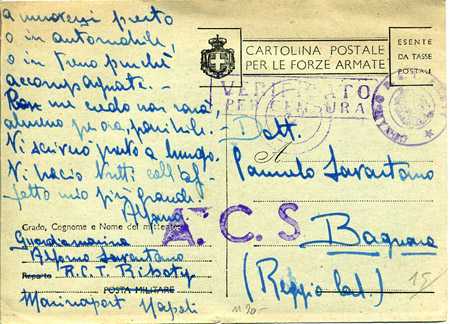 a muoversi presto
o in automobile,
o in treno purché
accompagnate. -
me credo non sarà,
almeno per ora, possibile.
Vi scriverò presto a lungo.
Vi bacio tutti coll'af-
fetto mio più grande.
Alfonso
Grado, Cognome e Nome del mittente
Guardiamarina
Alfonso Savastano
Reparto R.C.T. Riboty
POSTA MILITARE
Marinaport Napoli
CARTOLINA POSTALE
PER LE FORZE ARMATE
ESENTE
DA TASSE
POSTALI
VERIFICATO
PER CENSURA
Dott.
A
Savastano
A.C.S
Bagnara
(Reggio Cal.)
15